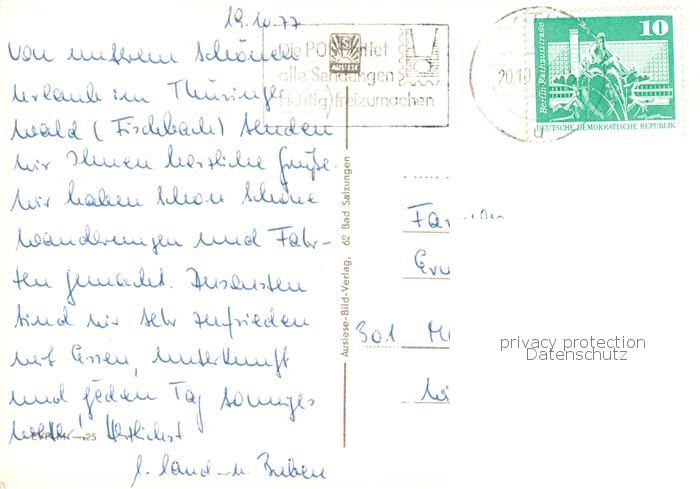 19.10.77
Von unserem schönen
Urlaub im Thüringer
Wald (Fischbach) senden
wir Ihnen herzliche Grüße.
Wir haben schon schöne
Wanderungen und Fahr-
ten gemacht. Ansonsten
sind wir sehr zufrieden
mit Essen, Unterkunft
und jeden Tag sonniges
Wetter! Herzlichst
EVP M -,25
Die POST bittet
alle Sendungen
richtig freizumachen
AUSLESE
20.10
10
Berlin-Rathausstraße
DEUTSCHE DEMOKRATISCHE REPUBLIK
Auslese-Bild-Verlag, 62 Bad Salzungen
301 M
privacy protection
Datenschutz